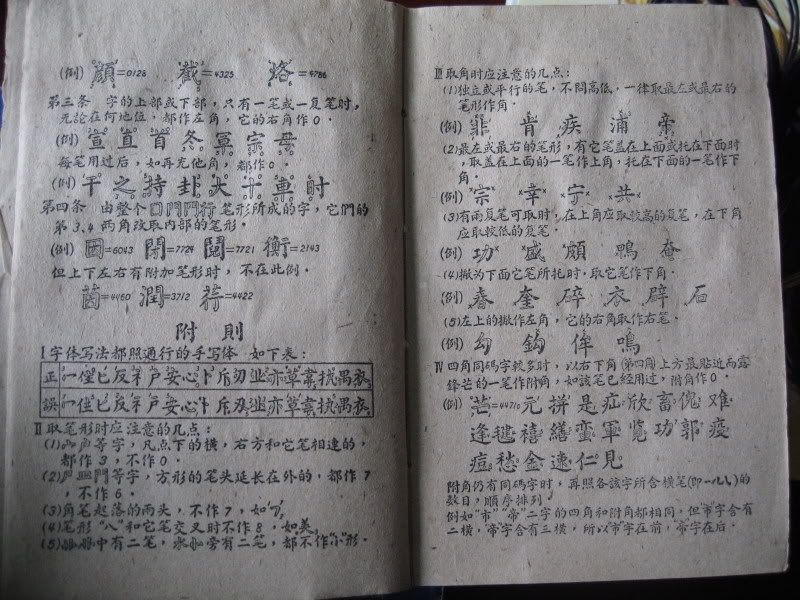 (例) 顏=0128 截=4325 烙=9786
第三条 字的上部或下部，只有一笔或一复笔时，
无論在何地位，都作左角，它的右角作0．
(例) 宣直首冬軍宗母
每笔用过后，如再充他角，都作0．
(例) 干之持卦大十車时
第四条 由整个囗門鬥行笔形所成的字，它們的
第3.4两角改取内部的笔形．
(例) 囡=6043 閉=7724 鬩=7721 衡=2143
但上下左右有附加笔形时，不在此例．
茵=4460 潤=3712 荇=4422
附則
I字体写法都照通行的手写体 如下表：
正
誤
II取笔形时应注意的几点：
(1)等字，凡点下的横，右方和它笔相連的，
都作3，不作0．
(2)等字，方形的笔头延长在外的，都作7
，不作6．
(3)角笔起落的两头，不作7，如
(4)笔形"八"和它笔交叉时不作8．如美．
(5)中有二笔，旁有二笔，都不作"小"形．
III取角时应注意的几点：
(1)独立或平行的笔，不問高低，一律取最左或最右的
笔形作角．
(例) 非肯疾浦帝
(2)最左或最右的笔形，有它笔盖在上面或托在下面时
，取盖在上面的一笔作上角，托在下面的一笔作下
角．
(例) 宗幸宁共
(3)有两复笔可取时，在上角应取較高的复笔，在下角
应取較低的复笔．
(例) 功盛頗鴨奄
(4)撇为下面它笔所托时，取它笔作下角．
(例) 春奎碎衣辟石
(5)左上的撇作左角，它的右角取作右笔．
(例) 勾鈎侔鳴
IV四角同碼字較多时，以右下角(第四角)上方最貼近而露
鋒芒的一笔作附角，如該笔已經用过，附角作0．
(例) 芒=44710元拼是症欣畜傀难
逢毽禧繕蛮軍覧功郭疫
痘愁金速仁見
附角仍有同碼字时，再照各該字所含横笔(即一㇀乀)的
数目，順序排列．
例如"市""帝"二字的四角和附角都相同，但"市"字含有
二横，"帝"字含有三横，所以"市"字在前，"帝"字在后．